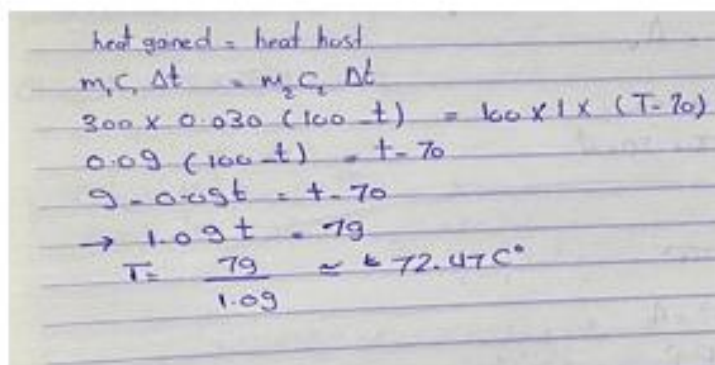 heat gained = heat host
m₁C₁ Δt = m₂C₂ Δt
300 x 0.030 (100 - t) = 100 x 1 x (T - 70)
0.09 (100 - t) = t - 70
9 - 0.09t = t - 70
→ 1.09t = 79
T = 79 / 1.09 ≃ t 72.47 C°